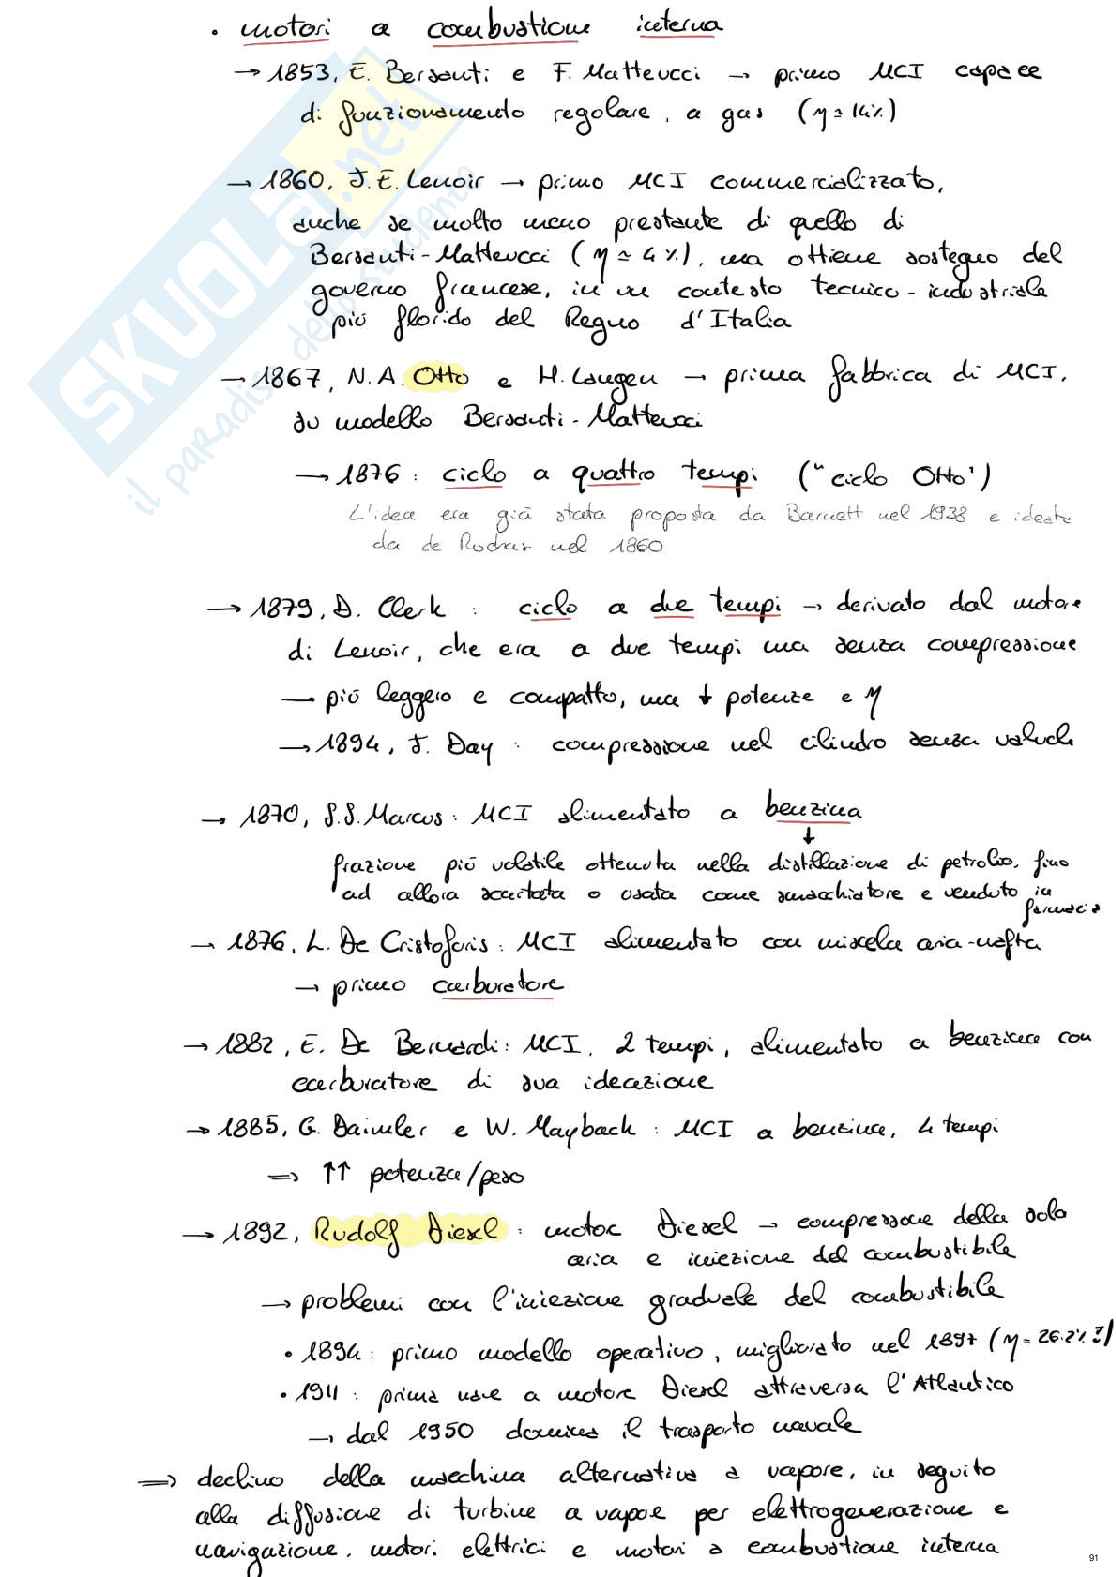 • motori a combustione interna
→ 1853, E. Barsanti e F. Matteucci → primo MCI capace
di funzionamento regolare, a gas (η ≃ 14%)
→ 1860, J.E. Lenoir → primo MCI commercializzato,
anche se molto meno prestante di quello di
Barsanti-Matteucci (η ≃ 4%), ma ottiene sostegno del
governo francese, in un contesto tecnico-industriale
più florido del Regno d'Italia
→ 1867, N.A. Otto e H. Langen → prima fabbrica di MCI,
su modello Barsanti-Matteucci
→ 1876: ciclo a quattro tempi ("ciclo Otto")
L'idea era già stata proposta da Barnett nel 1938 e ideata
da de Rochas nel 1860
→ 1879, D. Clerk: ciclo a due tempi → derivato dal motore
di Lenoir, che era a due tempi ma senza compressione
→ più leggero e compatto, ma ↓ potenze e η
→ 1894, J. Day: compressione nel cilindro senza valvole
→ 1870, S.S. Marcus: MCI alimentato a benzina
↓
frazione più volatile ottenuta nella distillazione di petrolio, fino
ad allora scartata o usata come smacchiatore e venduto in
farmacia
→ 1876, L. De Cristoforis: MCI alimentato con miscela aria-nafta
→ primo carburatore
→ 1882, E. De Bernardi: MCI, 2 tempi, alimentato a benzina con
carburatore di sua ideazione
→ 1885, G. Daimler e W. Maybach: MCI a benzina, 4 tempi
⇒ ↑↑ potenza/peso
→ 1892, Rudolf Diesel: motore Diesel → compressione della sola
aria e iniezione del combustibile
→ problemi con l'iniezione graduale del combustibile
• 1894: primo modello operativo, migliorato nel 1897 (η = 26.2%!)
• 1911: prima nave a motore Diesel attraversa l'Atlantico
→ dal 1950 domina il trasporto navale
⇒ declino della macchina alternativa a vapore, in seguito
alla diffusione di turbine a vapore per elettrogenerazione e
navigazione, motori elettrici e motori a combustione interna
SKUOLA.net
il paradiso dello studente
91